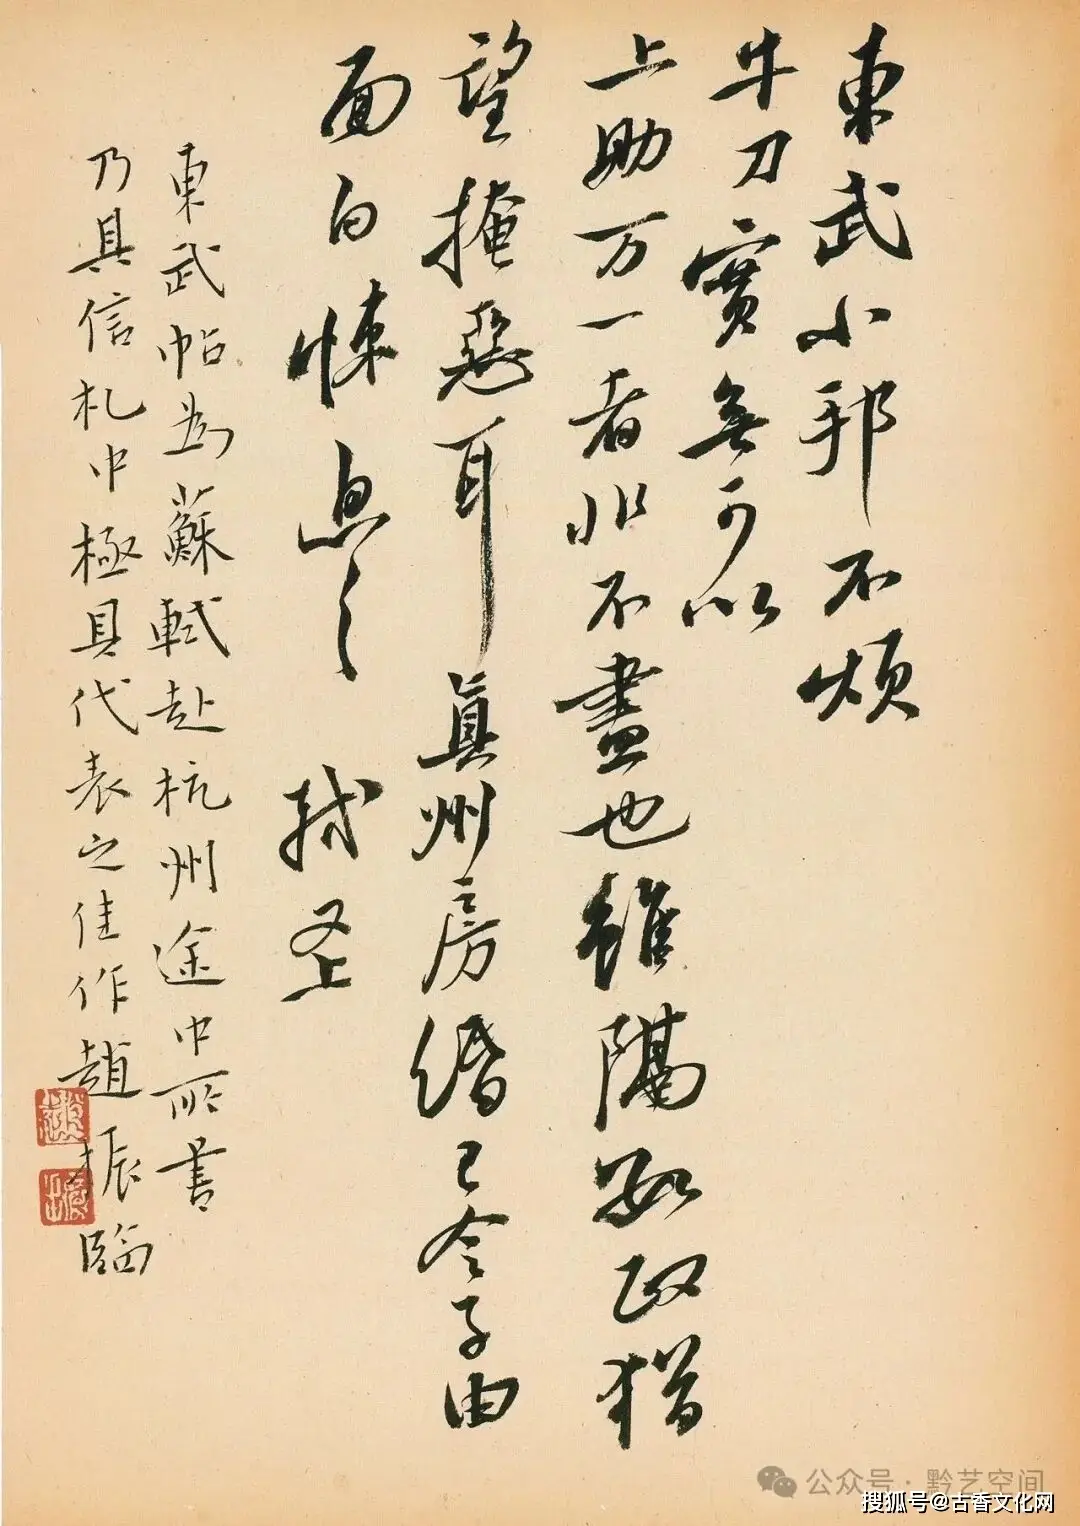 東武小邦不煩
牛刀實無可以
上助万一者非不盡也雖隔數政猶
望掩惡耳真州房緡已令子由
面白悚息〻 軾又上
東武帖為蘇軾赴杭州途中所書
乃其信札中極具代表之佳作趙振臨
公众号·黔艺空间
搜狐号@古香文化网